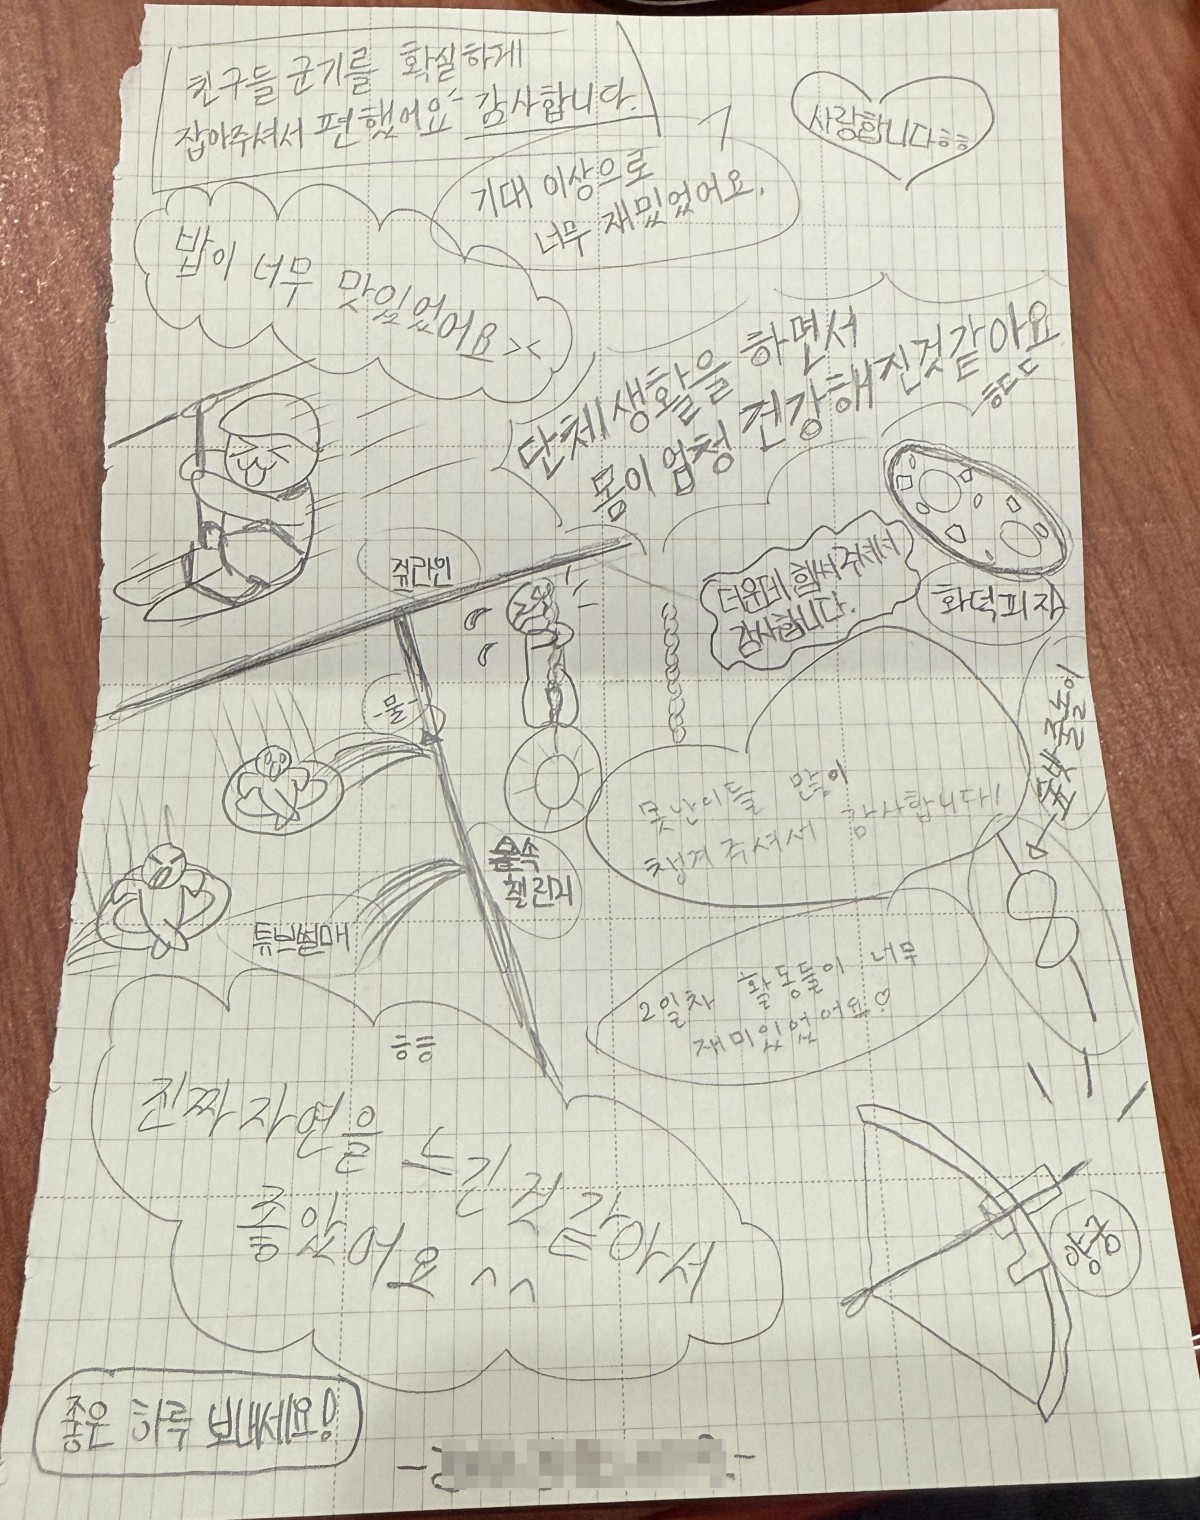 친구들 군기를 확실하게
잡아주셔서 편했어요~ 감사합니다.
사랑합니다ㅎㅎ
기대 이상으로
너무 재밌었어요.
밥이 너무 맛있었어요><
단체생활을 하면서
몸이 엄청 건강해진것같아요
ㅎㄷㄷ
쥐라인
더운데 힘써주셔서
감사합니다.
화덕피자
-물-
숯밧줄놀이
못난이들 많이
챙겨주셔서 감사합니다!
물속
챌린지
튜브썰매
2일차 활동들이 너무
재미있었어요♡
흐흐
진짜 자연을 느긴것 같아서
좋았어요 ^^
양궁
좋은 하루 보내세요!